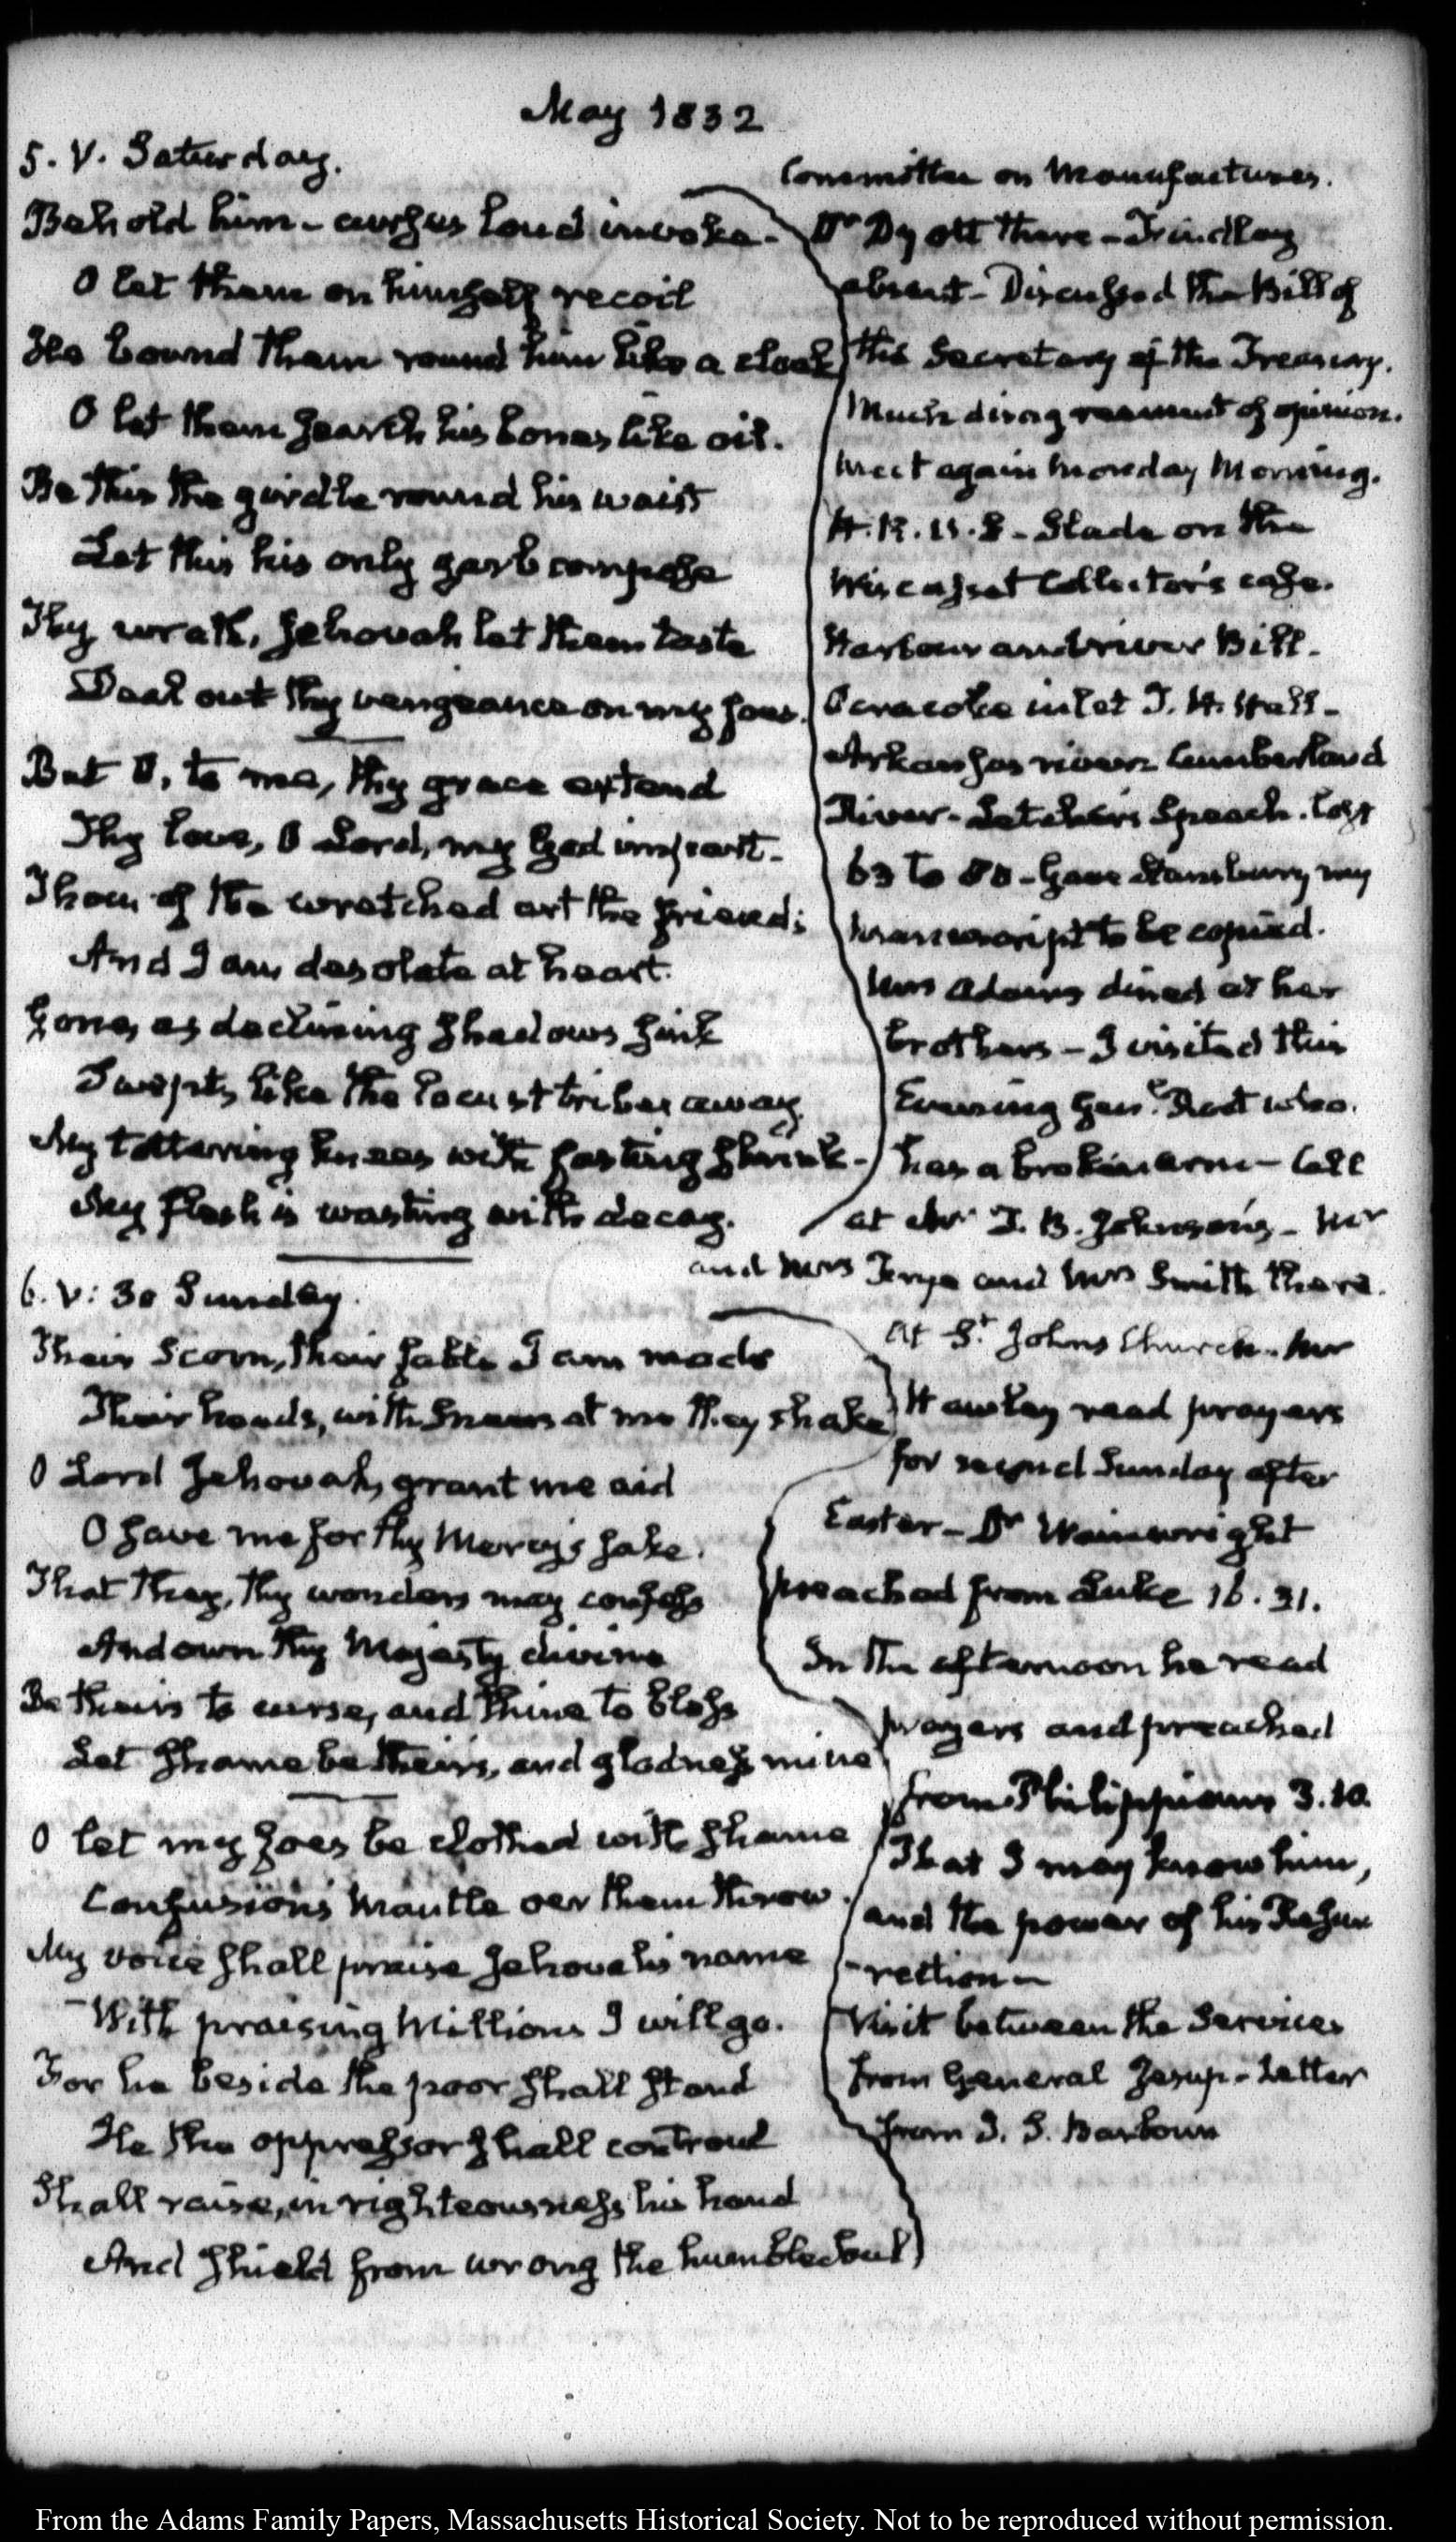 May 1832
5. V. Saturday.
Behold him - curses loud invoke -
O let them on himself recoil
He bound them round him like a cloak
O let them search his bones like oil.
Be this the girdle round his waist
Let this his only garb compose
Thy wrath, Jehovah let them taste
Deal out thy vengeance on my foes.
But O, to me, thy grace extend
Thy love, O Lord, my God impart -
Thou of the wretched art the friend;
And I am desolate at heart.
Gone, as declining shadows sink
Swept, like the locust tribes away
My tottering knees with fasting shrink -
My flesh is wasting with decay.
Committee on Manufactures.
Dr Dyott there - Findlay
absent - Discussed the Bill of
the Secretary of the Treasury.
Much disagreement of opinion.
Meet again Monday Morning.
H. R. U. S - Slade on the
Wiscasset Collector's case.
Harbour and river Bill -
Ocracoke inlet T. H. Hall -
Arkansas river Cumberland
River - Letcher's Speech. lost
63 to 80 - Gave Stansbury my
manuscript to be copied.
Mrs Adams dined at her
brothers - I visited this
Evening Genl. Root who
has a broken arm - Call
at Mr T. B. Johnson's - Mr
and Mrs Frye and Mrs Smith there.
6. V: 30 Sunday.
Their Scorn, their fable I am made
Their heads, with sneers at me they shake
O Lord Jehovah, grant me aid
O save me for thy Mercy's sake.
That they, thy wonders may confess
And own thy Majesty divine
Be theirs to curse, and thine to bless
Let shame be theirs, and gladness mine
O let my foes be clothed with shame
Confusion's Mantle oer them throw.
My voice shall praise Jehovah's name
With praising Millions I will go.
For he beside the poor shall stand
He the oppressor shall controul
Shall raise, in righteousness his hand
And shield from wrong the humble Soul
At St. Johns Church. Mr
Hawley read prayers
for second Sunday after
Easter - Dr Wainwright
preached from Luke 16. 31.
In the afternoon he read
prayers and preached
from Philippians 3. 10.
That I may know him,
and the power of his Resur
-rection -
Visit between the Services
from General Jesup - Letter
from J. S. Barbour
From the Adams Family Papers, Massachusetts Historical Society. Not to be reproduced without permission.